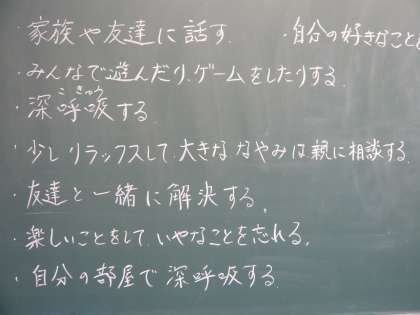 ・家族や友達に話す.
・自分の好きなこと
・みんなで遊んだり、ゲームをしたりする.
こきゅう
・深呼吸する.
・少しリラックスして、大きな なやみは親に相談する.
・友達と一緒に解決する.
・楽しいことをして、いやなことを忘れる.
・自分の部屋で深呼吸する